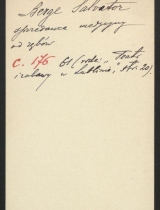 Berge Salvator
sprzedawca maszyny
od zębów
C. 176 61 (
i zabawy w Lublinie", str. 20).